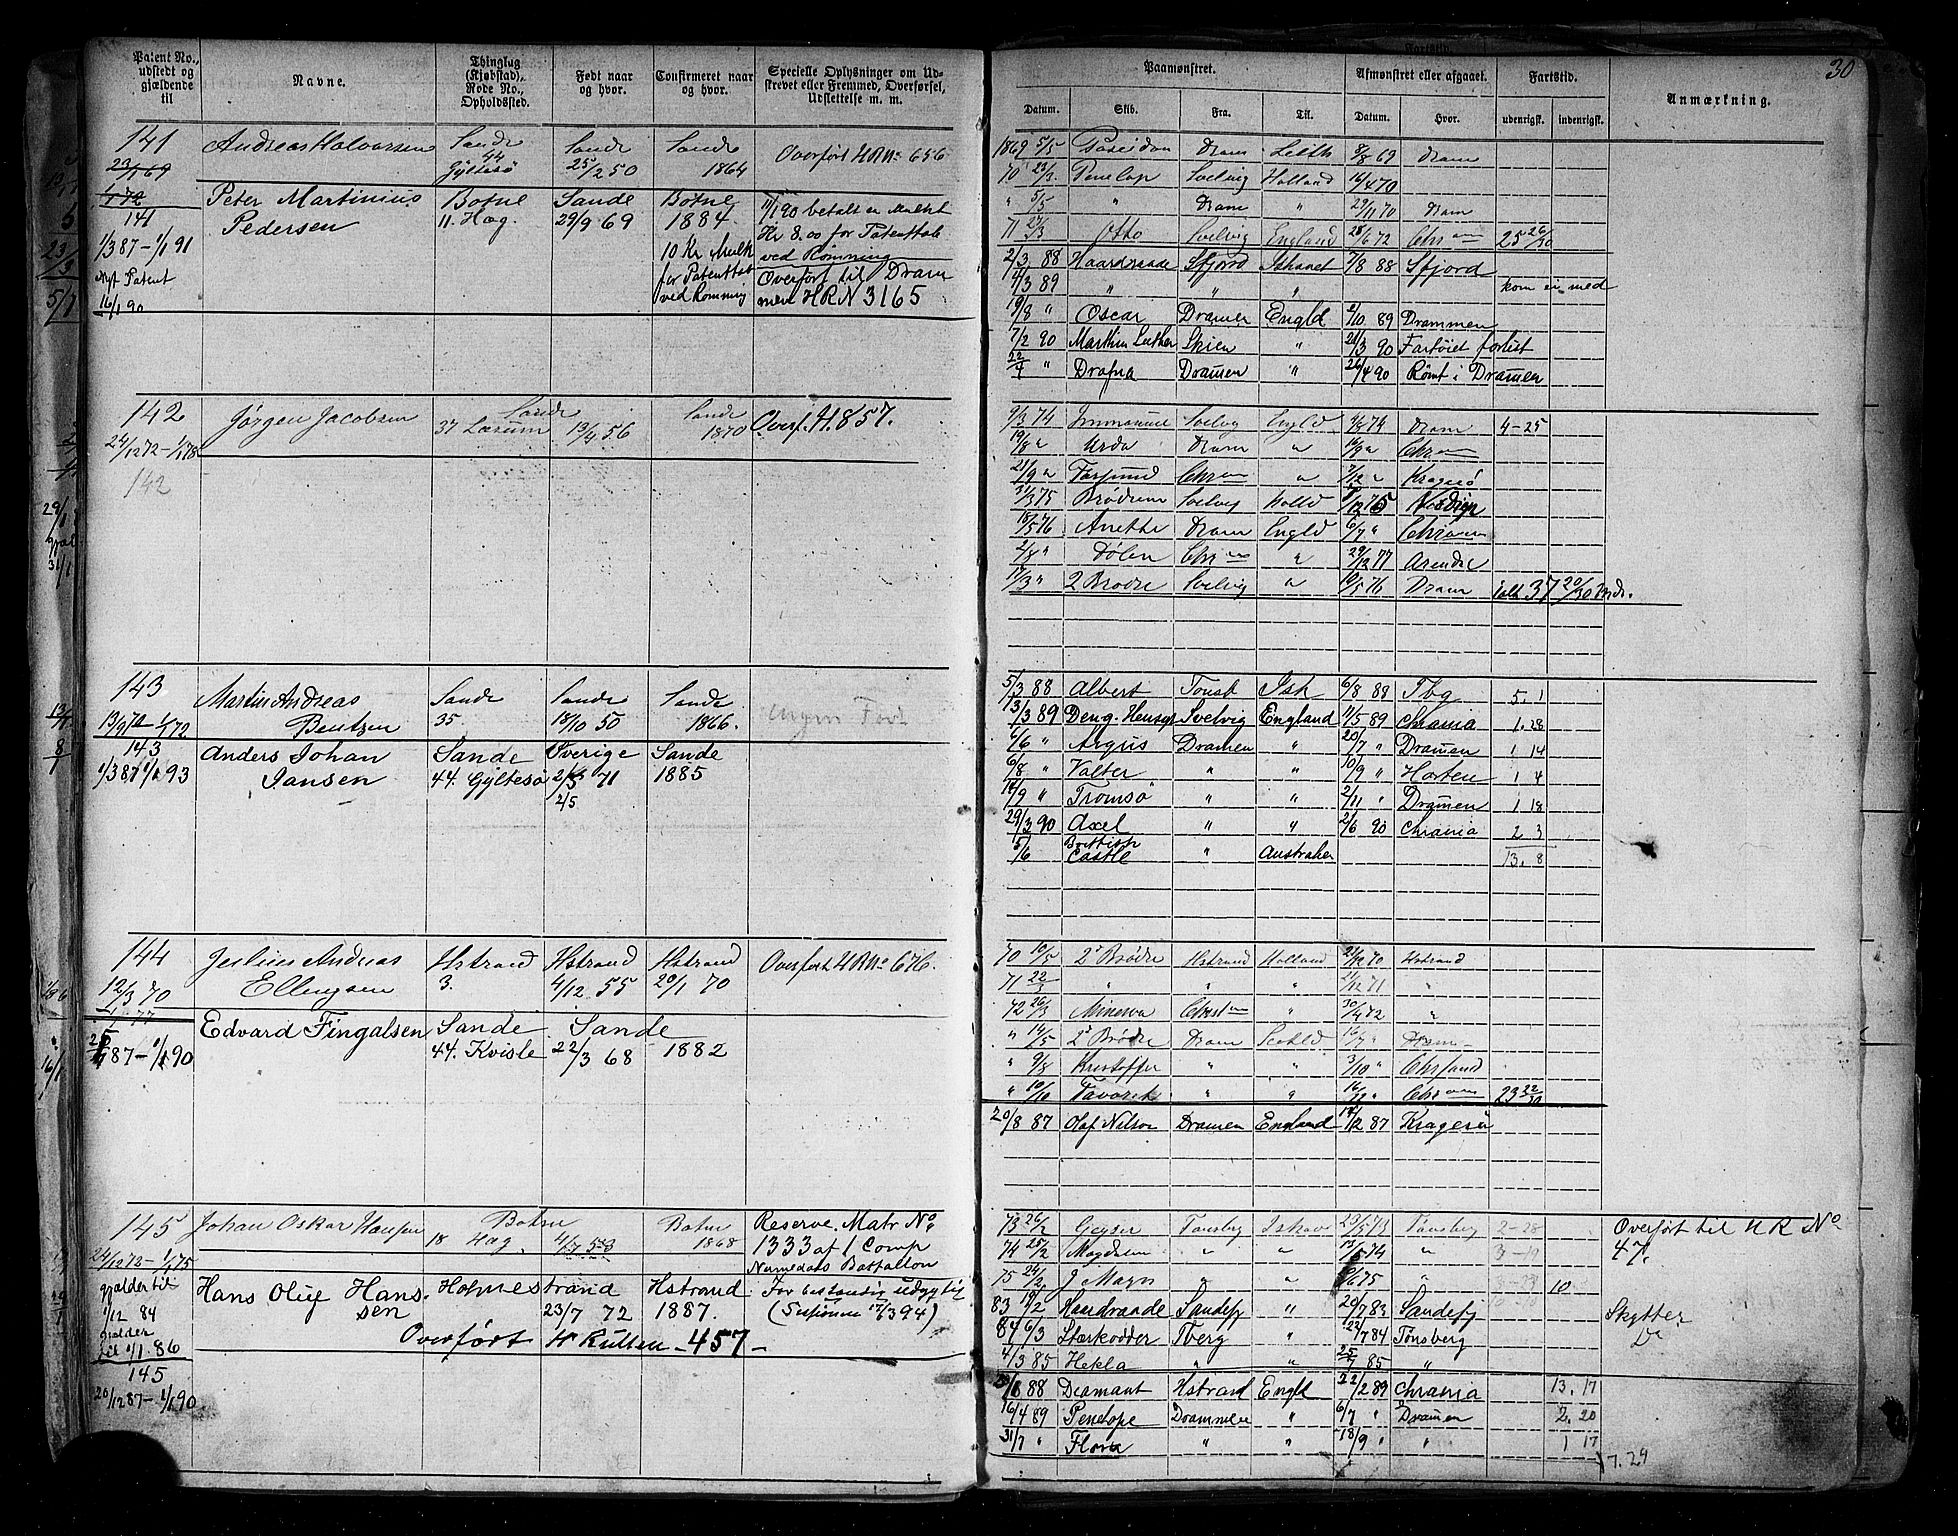 Patent No., udstedt og gjældende til
Navne.
Thinglag (Kjøbstad), Rode No., Opholdssted.
Født naar og hvor.
Confirmeret naar og hvor.
Specielle Oplysninger om Udskrevet eller Fremmed, Overførsel, Udslettelse m. m.
Paamønstret.
Afmønstret eller afgaaet.
Fartstid.
Anmærkning.
30
Datum.
Skib.
Fra.
Til.
Datum.
Hvor.
udenrigsk.
indenrigsk.
141 Andreas Halvorsen Sande Sande Sande Overført HRNo 656
23/1 69 44 Gyltesø 25/2 50 1864
1/1 72 Peter Martinius Botne Sande Botne 11/1 90 betalt en Mulkt
141 Pedersen 11. Hæg. 29/9 69 1884. Kr 8.00 for Patenttab
1/3 87 – 1/1 91 10 Kr Mulkt ved Rømning
Nyt Patent for Patenttab Overført til Dram
16/1 90 ved Rømning men HRN 3165
1869 5/5 Poseidon Dram Leith 8/8 69 Dram
70 23/2 Penelop Svelvig Holland 14/4 70
" 5/5 " Dram " 29/11 70 Dram
71 27/3 Otto Svelvig England 28/6 72 Chr 25 26/30
2/3 88 Haardraade Sfjord Ishavet 7/8 88 Sfjord
4/3 89 " " " kom ei med
19/8 " Oscar Dramen Engld 2/10 89 Drammen
7/2 90 Marthin Luther Skien " 21/3 90 Fartøiet forlist
22/4 " Drafna Dramen " 26/4 90 Rømt i Dramen
142 Jørgen Jacobsen Sande Sande Overf. H.857.
24/12 72 – 1/1 78 37 Lærum 13/4 56 1870
142
9/2 74 Immanuel Svelvg Engld 4/8 74 Dram 4-25
19/8 " Urda Dram " 14/9 " Chr
21/9 " Farsund Chr " 7/12 " Kragerø
31/3 75 Brødrene Svelvig Holld
18/5 76 Anette Dram Engld 6/7 " Chr
2/8 " Dølen Chr " 29/12 77 Arendal
17/3 " 2 Brødre Svelvig " 10/5 76 Dram ialt 37 20/30 Mdr.
143 Martin Andreas Sande Sande Sande
13/9 70 1/1 72 Bentzen 35 18/10 50 1866. ingen Fart
143 Anders Johan Sande Sverige Sande
1/3 87 1/1 93 Jansen 44. Gyltesø 2/3 71 1885
2/5
5/3 88 Albert Tonsb Ish 6/8 88 Tbg 5. 1
13/3 89 Svelvig England 11/5 89 Chrania 1. 28
6/6 " Argus Dramen " 20/7 " Draman 1 14
6/8 " Valter " " 10/9 " Horten 1 4
14/9 " Tromsø " " 2/11 " Dramen 1 18
29/3 90 Axel " " 2/6 90 Chrania 2 3
5/6 Brittish Castle " Australien 13. 8
144 Julius Andreas Hstrand Hstrand Hstrand Overført HRNo 676.
12/3 70 Ellingsen 3. 4/12 55 20/1 70
1/1 77 Edvard Fingalsen Sande Sande
87 – 1/1 90 44. Kvisle 22/3 68 1882
70 10/5 2 Brødre Hstrand Holland 21/12 70 Hstrand
71 22/3 " " " 21/12 71 "
72 26/3 Minerva Christ " 30/4 72 "
" 14/5 2 Brødre Dram Scotld 16/7 " Dram
" 9/8 Kristoffer " " 3/10 " Chrsand
" 10/10 Favorit " " 16/12 " Chr 23 22/30
20/8 87 Olaf Nilson Dramen England 12/12 87 Kragerø
145 Johan Oskar Hansen Botne Botne Reserve. Matr No
24/12 72 – 1/1 75 18 Hæg. 4/7 53 1868 1333 af 1 Comp
Numedals Battallon
gjælder til Hans Oluf Hanssen Holmestrand Hstrand For bestandig udygtig
1/12 84 23/7 72 1887. (Sesionen 17/6 394)
gjælder til 1/1. 86 Overført H Rullen – 457 –
145
20/12 87 – 1/1 90
73 26/2 Geyser Tønsberg Ishav 23/5 73 Tønsberg 2-28 Overført til H R No 47.
74 25/2 Magdxxx " " 13/5 74 " 3-19
75 24/2 J Mayn " " 75 " 10
83 19/2 Haardraade Sandefj " 20/7 83 Sandefj Skytter
84 6/3 Stærkodder Tberg " 22/7 84 Tønsberg Do
4/3 85 Hekla " " 25/7 85 "
88 Diamant Hstrand Engld 22/2 89 Chrania 13. 17
16/4 89 Penelope Drammen " 6/7 " Dramen 2. 20
31/7 " Flora " " 18/9 " " 1 17
17. 24